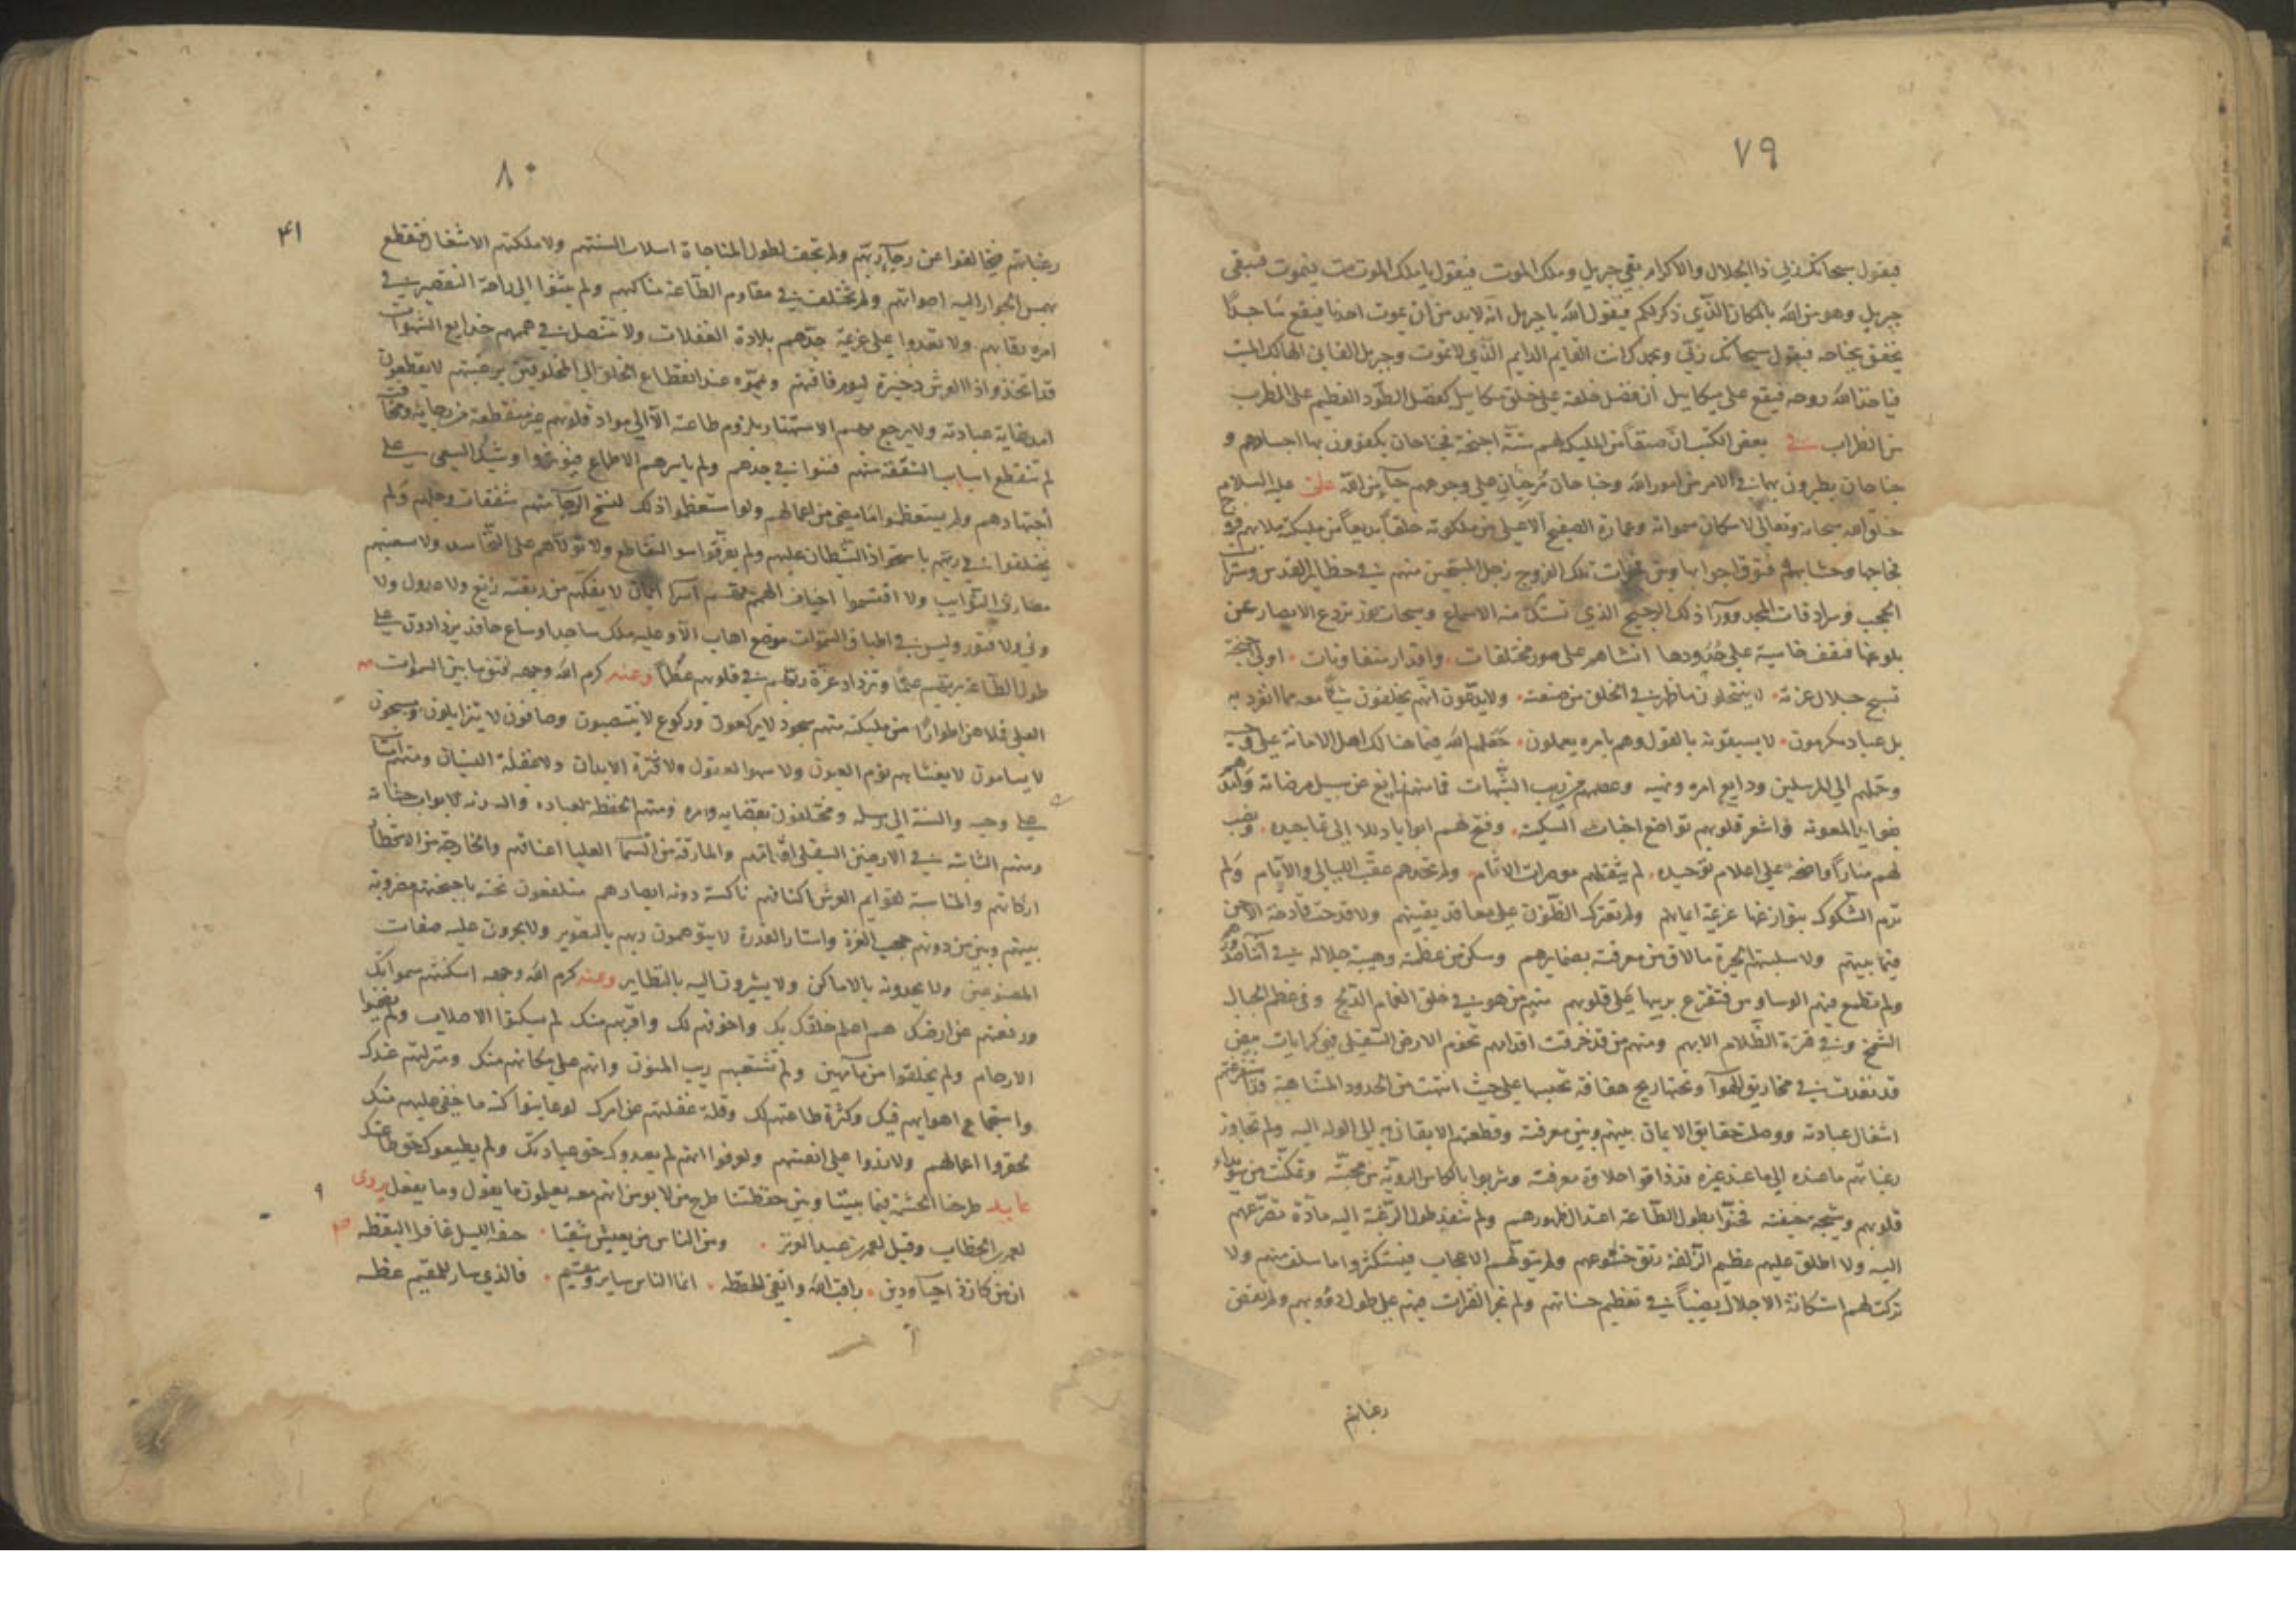 ٧٩
فيقول سبحانك ربي ذا الجلال والاكرام بقي جبريل وملك الموت فيقول يا ملك الموت مت فيموت فيبقى
جبريل وهو من الله بالمكان الذي ذكر لكم فيقول الله يا جبريل انه لا بد من ان يموت احدنا فيقع ساجدا
يخفق بجناحه فيقول سبحانك ربي وبحمدك انت القايم الدايم الذي لا تموت وجبريل الفاني الهالك الميت
فياخذ الله روحه فيقع على ميكاييل ان فضل خلقه على خلق ميكاييل كفضل الطود العظيم على الظرب
من الظراب في بعض الكتب ان صنفا من المليكة لهم ستة اجنحة فجناحان يكفون بها اجسادهم و
جناحان يطيرون بهما في الامر من امور الله وجناحان مرخيان على وجوههم حيآ من الله علي عليه السلام
خلق الله سبحانه وتعالى لاسكان سمواته وعمارة الصفيح الاعلى من ملكوته خلقا بديعا من مليكته ملا بهم فروج
فجاجها وحشا بهم فتوق اجوابها وبين فجوات تلك الفروج زجل المسبحين منهم في حظاير القدس وسترات
الحجب وسرادقات المجد وورآ ذلك الرجيج الذي تستك منه الاسماع وسبحات نور تردع الابصار عن
بلوغها فتقف خاسية على حدودها انشاهم على صور مختلفات واقدار متفاوتات اولي اجنحة
تسبح جلال عزته لا ينتحلون ما ظهر في الخلق من صنعته ولا يدعون انهم يخلقون شيا معه مما انفرد به
بل عباد مكرمون لا يسبقونه بالقول وهم بامره يعملون جعلهم الله فيما هنالك اهل الامانة على وحيه
وحملهم الى المرسلين ودايع امره ونهيه وعصمهم من ريب الشبهات فما منهم زايغ عن سبيل مرضاته وامدهم
بفوايد المعونة واشعر قلوبهم تواضع اخبات السكينة وفتح لهم ابوابا ذللا الى تماجيده ونصب
لهم منارا واضحة على اعلام توحيده لم يثقلهم موصرات الاثام ولم ترتحلهم عقب الليالي والايام ولم
ترم الشكوك بنوازغها عزيمة ايمانهم ولم تعترك الظنون على معاقد يقينهم ولا قدحت قادحة الاحن
فيما بينهم ولا سلبتهم الحيرة ما لاق من معرفته بضمايرهم وسكن من عظمته وهيبة جلاله في اثنآ صدورهم
ولم تطمع فيهم الوساوس فتقترع بريبها على قلوبهم منهم من هو في خلق الغمام الدلح وفي عظم الجبال
الشمخ وفي قترة الظلام الابهم ومنهم من قد خرقت اقدامهم تخوم الارض السفلى فهي كرايات بيض
قد نفذت في مخاريق الهوآ وتحتها ريح هفافة تحبسها على حيث انتهت من الحدود المتناهية قد استفرغتهم
اشغال عبادته ووصلت حقايق الايمان بينهم وبين معرفته وقطعهم الايقان به الى الوله اليه ولم تجاوز
رغباتهم ما عنده الى ما عند غيره قد ذاقوا حلاوة معرفته وشربوا بالكاس الروية من محبته وتمكنت من سويدآء
قلوبهم وشيجة خيفته فحنوا بطول الطاعة اعتدال ظهورهم ولم ينفد طول الرغبة اليه مادة تضرعهم
اليه ولا اطلق عليهم عظيم الزلفة ربق خشوعهم ولم يتولهم الاعجاب فيستكثروا ما سلف منهم ولا
تركت لهم استكانة الاجلال نصيبا في تعظيم حسناتهم ولم تجر الفترات فيهم على طول دؤوبهم ولم تغض
رغباتهم
٨٠
٤١
رغباتهم فيخالفوا عن رجآ ربهم ولم تجف لطول المناجاة اسلات السنتهم ولا ملكتهم الاشغال فتنقطع
بهمس الجوار اليه اصواتهم ولم تختلف في مقاوم الطاعة مناكبهم ولم يثنوا الى راحة التقصير في
امره رقابهم ولا تعدوا على عزيمة جدهم بلادة الغفلات ولا تنتضل في هممهم خدايع الشهوات
قد اتخذوا ذا العرش ذخيرة ليوم فاقتهم ويمموه عند انقطاع الخلق الى المخلوقين برغبتهم لا يقطعون
امد غاية عبادته ولا يرجع بهم الاستهتار بلزوم طاعته الا الى مواد قلوبهم غير منقطعة من رجايه ومخافته
لم تنقطع اسباب الشفقة منهم فينوا في جدهم ولم ياسرهم الاطماع فيوثروا وشيك السعي على
اجتهادهم ولم يستعظموا ما مضى من اعمالهم ولو استعظموا ذلك لنسخ الرجآ منهم شفقات وجلهم ولم
يختلفوا في ربهم باستحواذ الشيطان عليهم ولم يفرقهم سو التقاطع ولا تولاهم غل التحاسد ولا شعبتهم
مصارف الريب ولا اقتسمتهم اخياف الهمم فهم اسرآ ايمان لا يفكهم من ربقته زيغ ولا عدول ولا
ونى ولا فتور وليس في اطباق السموات موضع اهاب الا وعليه ملك ساجد او ساع حافد يزدادون على
طول الطاعة بربهم علما وتزداد عزة ربهم في قلوبهم عظما وعنه كرم الله وجهه ثم فتق ما بين السموات
العلى فملاهن اطوارا من مليكته منهم سجود لا يركعون وركوع لا ينتصبون وصافون لا يتزايلون ومسبحون
لا يسامون لا يغشاهم نوم العيون ولا سهو العقول ولا فترة الابدان ولا غفلة النسيان ومنهم امنآ
على وحيه والسنة الى رسله ومختلفون بقضايه وامره ومنهم الحفظة لعباده والسدنة لابواب جنانه
ومنهم الثابتة في الارضين السفلى اقدامهم والمارقة من السمآ العليا اعناقهم والخارجة من الاقطار
اركانهم والمناسبة لقوايم العرش اكتافهم ناكسة دونه ابصارهم متلفعون تحته باجنحتهم مضروبة
بينهم وبين من دونهم حجب العزة واستار القدرة لا يتوهمون ربهم بالتصوير ولا يجرون عليه صفات
المصنوعين ولا يحدونه بالاماكن ولا يشيرون اليه بالنظاير وعنه كرم الله وجهه اسكنتهم سمواتك
ورفعتهم عن ارضك هم اعلم خلقك بك واخوفهم لك واقربهم منك لم يسكنوا الاصلاب ولم يضمنوا
الارحام ولم يخلقوا من مآ مهين ولم تشعبهم ريب المنون وانهم على مكانهم منك ومنزلتهم عندك
واستجماع اهوايهم فيك وكثرة طاعتهم لك وقلة غفلتهم عن امرك لو عاينوا كنه ما خفي عليهم منك
لحقروا اعمالهم ولازروا على انفسهم ولعرفوا انهم لم يعبدوك حق عبادتك ولم يطيعوك حق طاعتك
عابد طرحنا الحشمة فيما بيننا وبين حفظتنا طرح من لا يومن انهم معه يعلمون ما يقول وما يفعل يروى
لعمر بن الخطاب وقيل لعمر بن عبد العزيز ومن الناس من يعيش شقيا جيفة الليل غافل اليقظة
ان من كان ذا حيآ ودين راقب الله واتقى الحفظه انما الناس ساير ومقيم فالذي سار للمقيم عظه